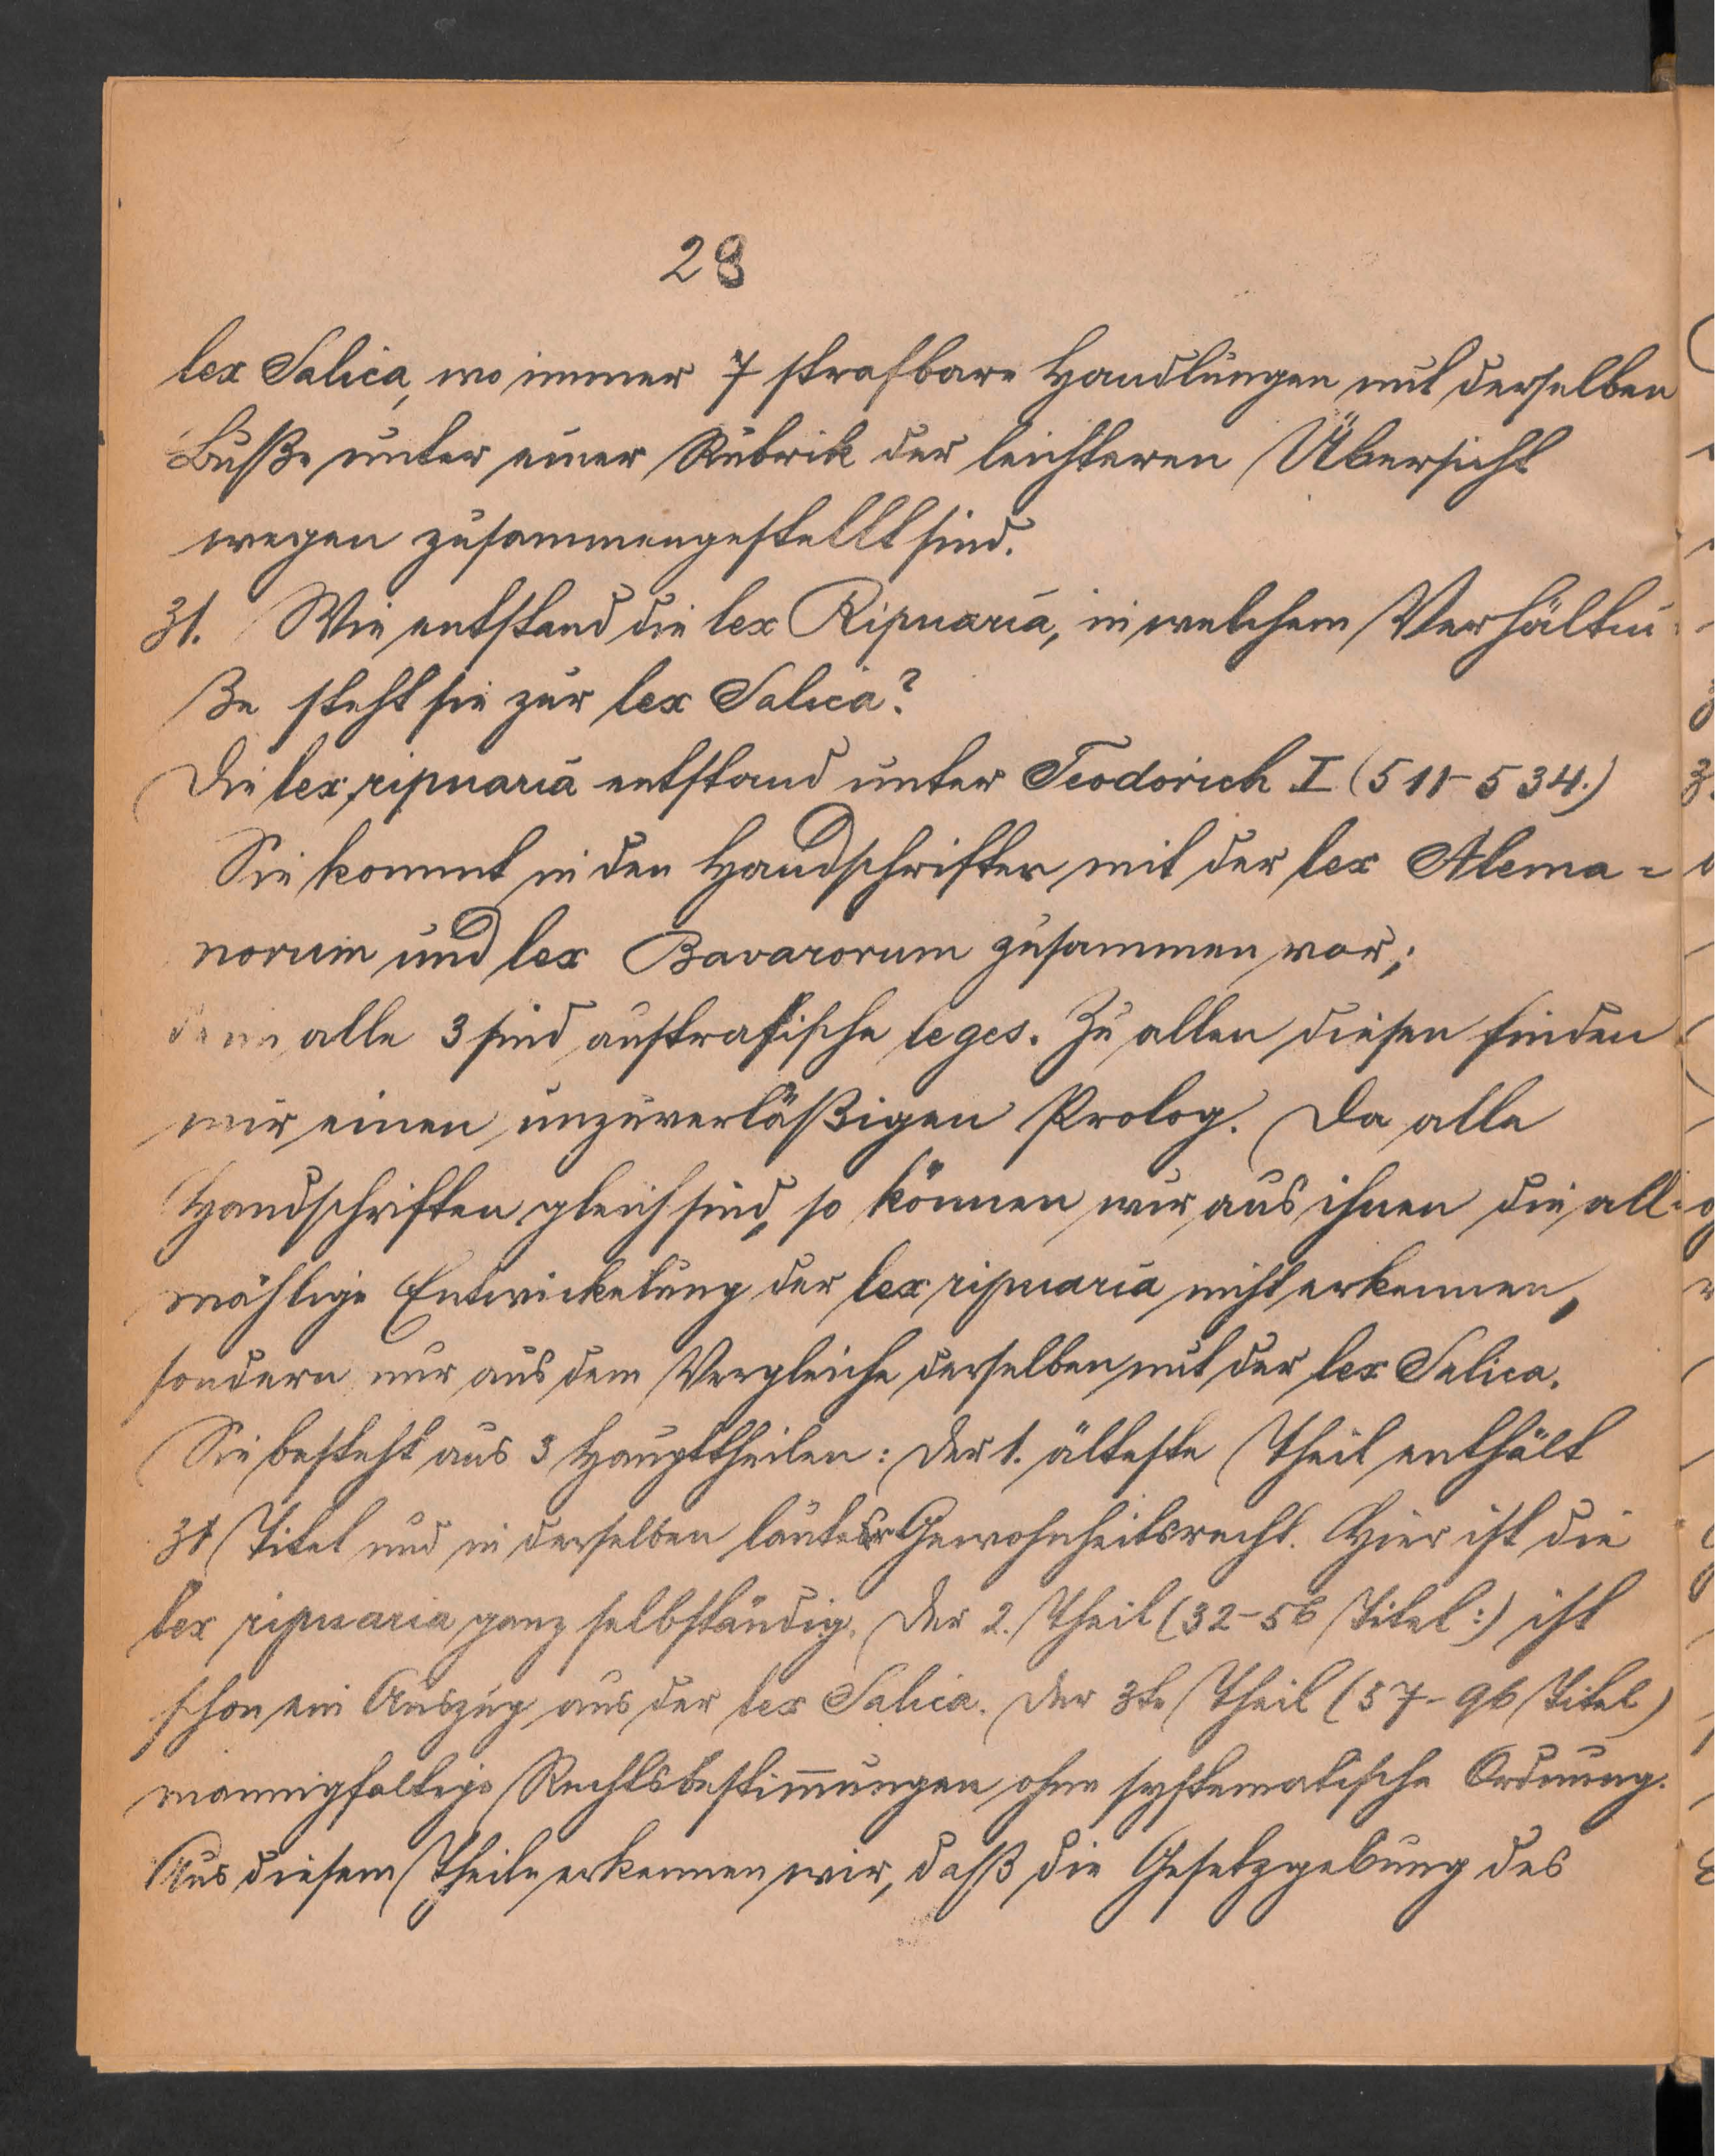 28
lex Salica, wo immer 7 strafbare Handlungen mit derselben
Buße unter einer Rubrik der leichteren Übersicht
wegen zusammengestellt sind.
31. Wie entstand die lex Ripuaria, in welchem Verhältni-
ße steht sie zur lex Salica?
Die lex ripuaria entstand unter Teodorich I (511-534.)
Sie kommt in den Handschriften mit der lex Alema=
norum und lex Bavarorum zusammen vor;
denn alle 3 sind austrasische leges. Zu allen diesen finden
wir einen unzuverläßigen Prolog. Da alle
Handschriften gleich sind, so können wir aus ihnen die all-
mählige Entwickelung der lex ripuaria nicht erkennen,
sondern nur aus dem Vergleiche derselben mit der lex Salica.
Sie besteht aus 3 Haupttheilen: Der 1. älteste Theil enthält
31 Titel und in derselben lauter Gewohnheitsrecht. Hier ist die
lex ripuaria ganz selbständig. Der 2. Theil (32-56 Titel:) ist
schon ein Auszug aus der lex Salica. Der 3te Theil (57-96 Titel)
mannigfaltige Rechtsbestim̅ungen ohne systematische Ordnung.
Aus diesem Theile erkennen wir, daß die Gesetzgebung des